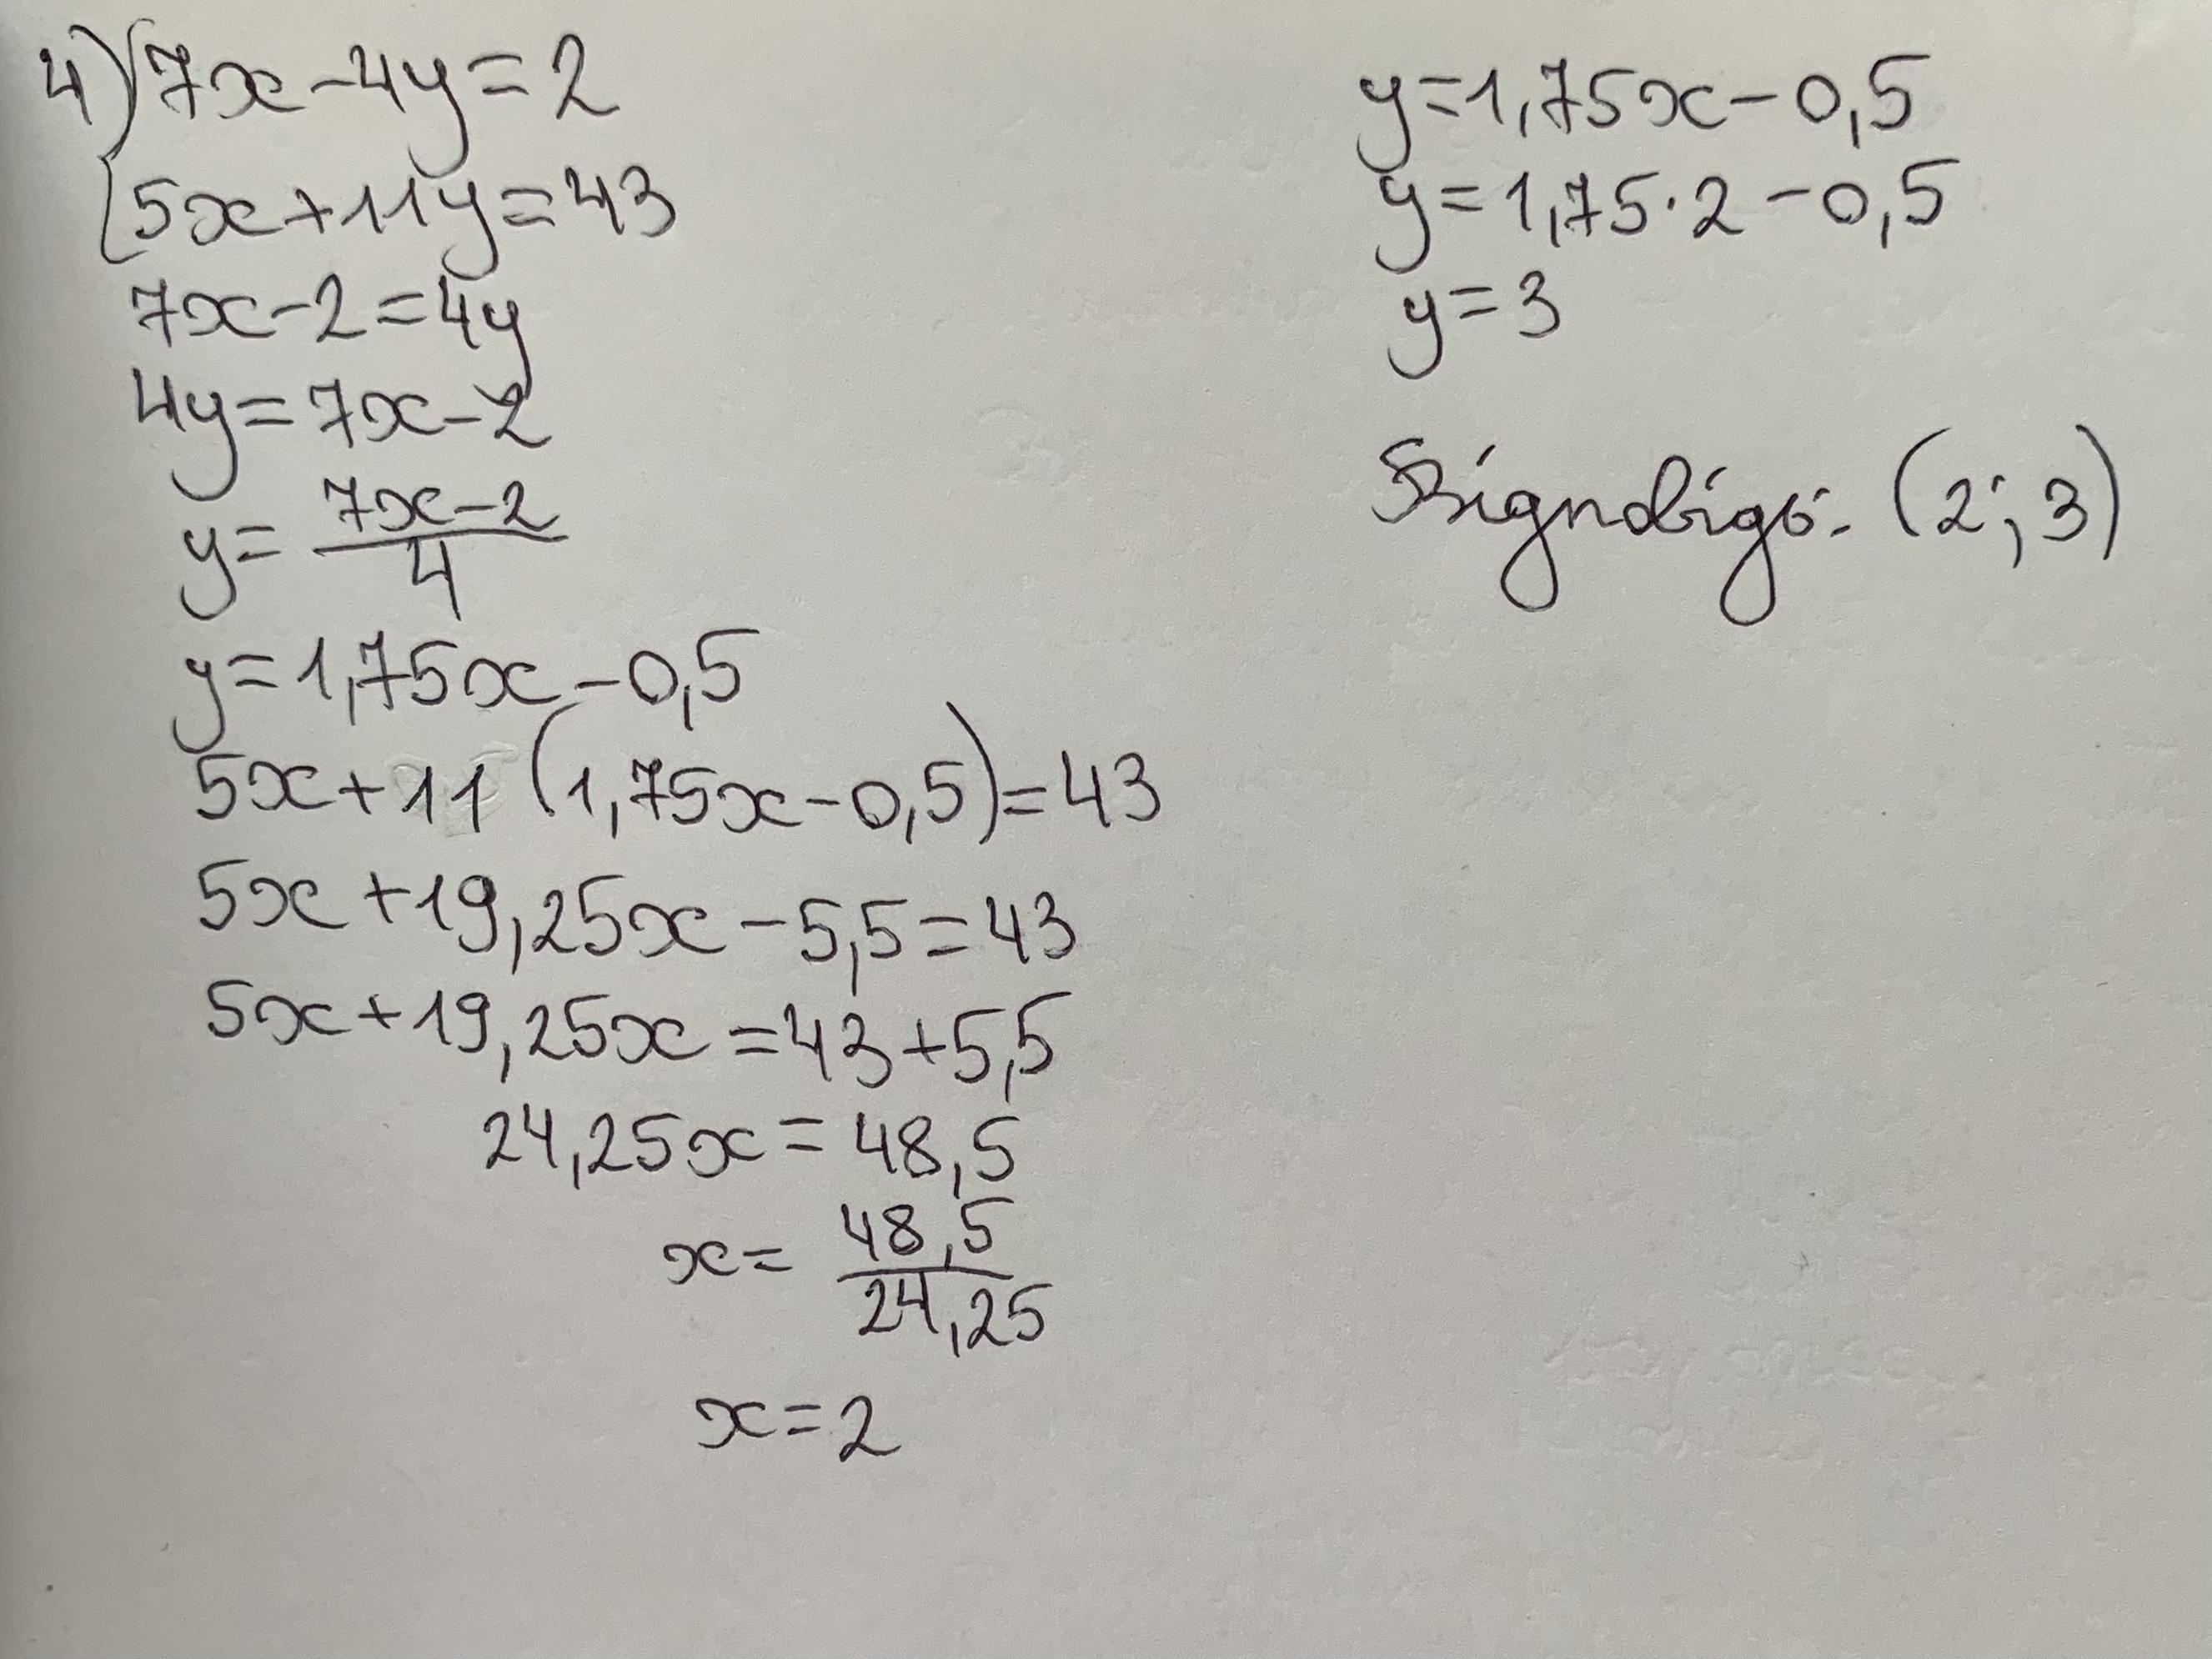 4) { 7x-4y=2
5x+11y=43
7x-2=4y
4y=7x-2
y= 7x-2 / 4
y=1,75x-0,5
5x+11(1,75x-0,5)=43
5x+19,25x-5,5=43
5x+19,25x=43+5,5
24,25x=48,5
x= 48,5 / 24,25
x=2
y=1,75x-0,5
y=1,75·2-0,5
y=3
(2; 3)